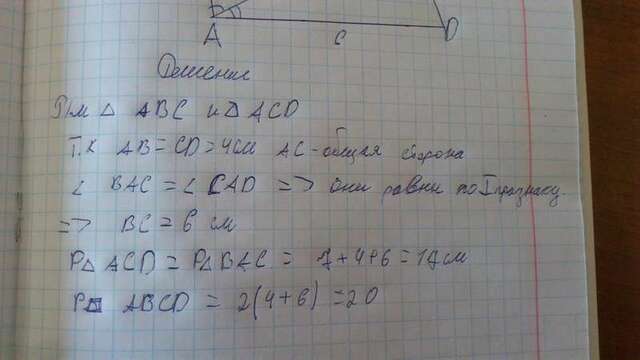 B
A c D
Решение
Р/м △ ABC и △ ACD
Т.к AB = CD = 4см AC - общая сторона
∠ BAC = ∠ CAD => они равни по I признаку.
=> BC = 6 см
P△ ACD = P△ BAC = 7+4+6 = 17см
P ABCD = 2(4+6) = 20